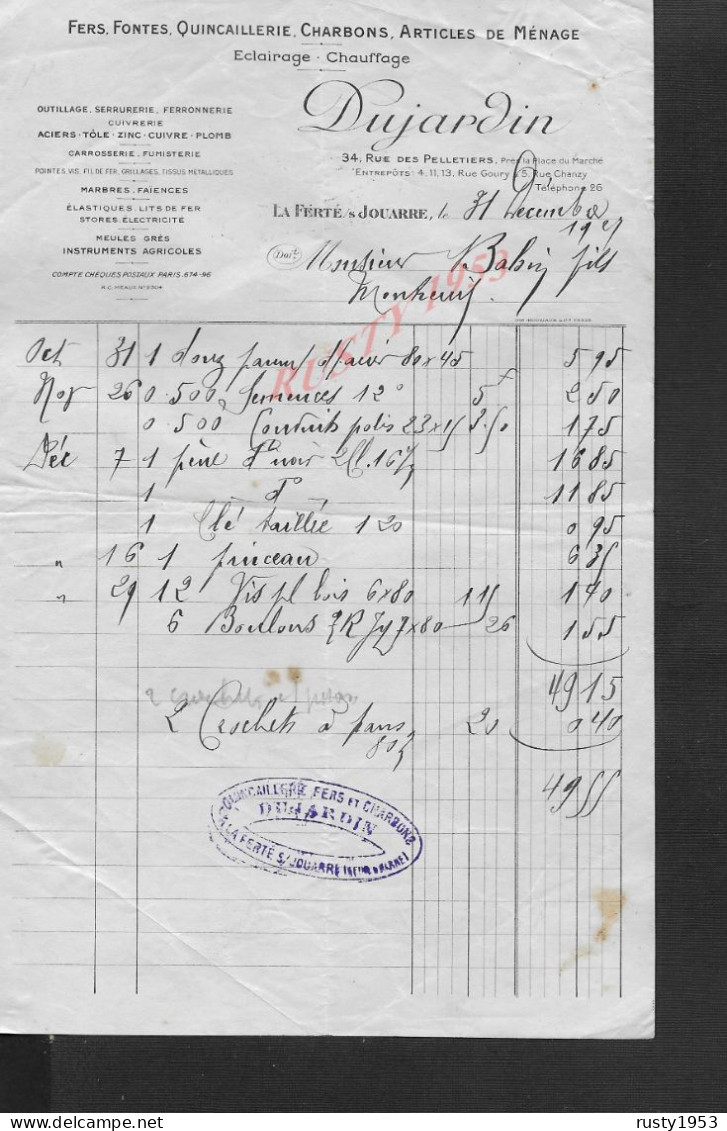 FERS, FONTES, QUINCAILLERIE, CHARBONS, ARTICLES DE MÉNAGE
Eclairage - Chauffage
OUTILLAGE, SERRURERIE, FERRONNERIE
CUIVRERIE
ACIERS - TÔLE - ZINC - CUIVRE - PLOMB
CARROSSERIE, FUMISTERIE
POINTES, VIS, FIL DE FER, GRILLAGES, TISSUS MÉTALLIQUES
MARBRES, FAÏENCES
ÉLASTIQUES, LITS DE FER
STORES, ÉLECTRICITÉ
MEULES GRÈS
INSTRUMENTS AGRICOLES
COMPTE CHÈQUES POSTAUX PARIS. 674-96
R.C. MEAUX Nº 5304
Dujardin
34, RUE DES PELLETIERS, Près la Place du Marché
ENTREPÔTS: 4, 11, 13, Rue Goury & 5, Rue Chanzy
Téléphone 26
LA FERTÉ s/ JOUARRE, le 31 Décembre
19
Doit Monsieur Babin fils
Montreuil
RUSTY 1953
Oct 31 1 80 x 45 5 95
Nov 26 0.500 Semences 12º 5 2 50
0.500 polis 23 x 15 3.50 1 75
Déc 7 1 16 85
1 dº 11 85
1 Clé taillée 120 0 95
" 16 1 pinceau 6 35
" 29 12 Vis pl bois 6x80 115 1 40
6 Boulons 7x80 26 1 55
49 15
2 Crochets à 20 0 40
49 55
QUINCAILLERIE FERS ET CHARBONS
DUJARDIN
A LA FERTÉ S/JOUARRE (SEINE & MARNE)
rusty1953